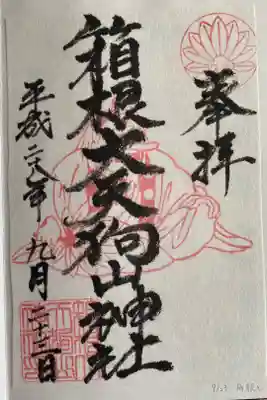 奉拝
箱根大天狗山神社
平成二十八年九月二十三日
9/23